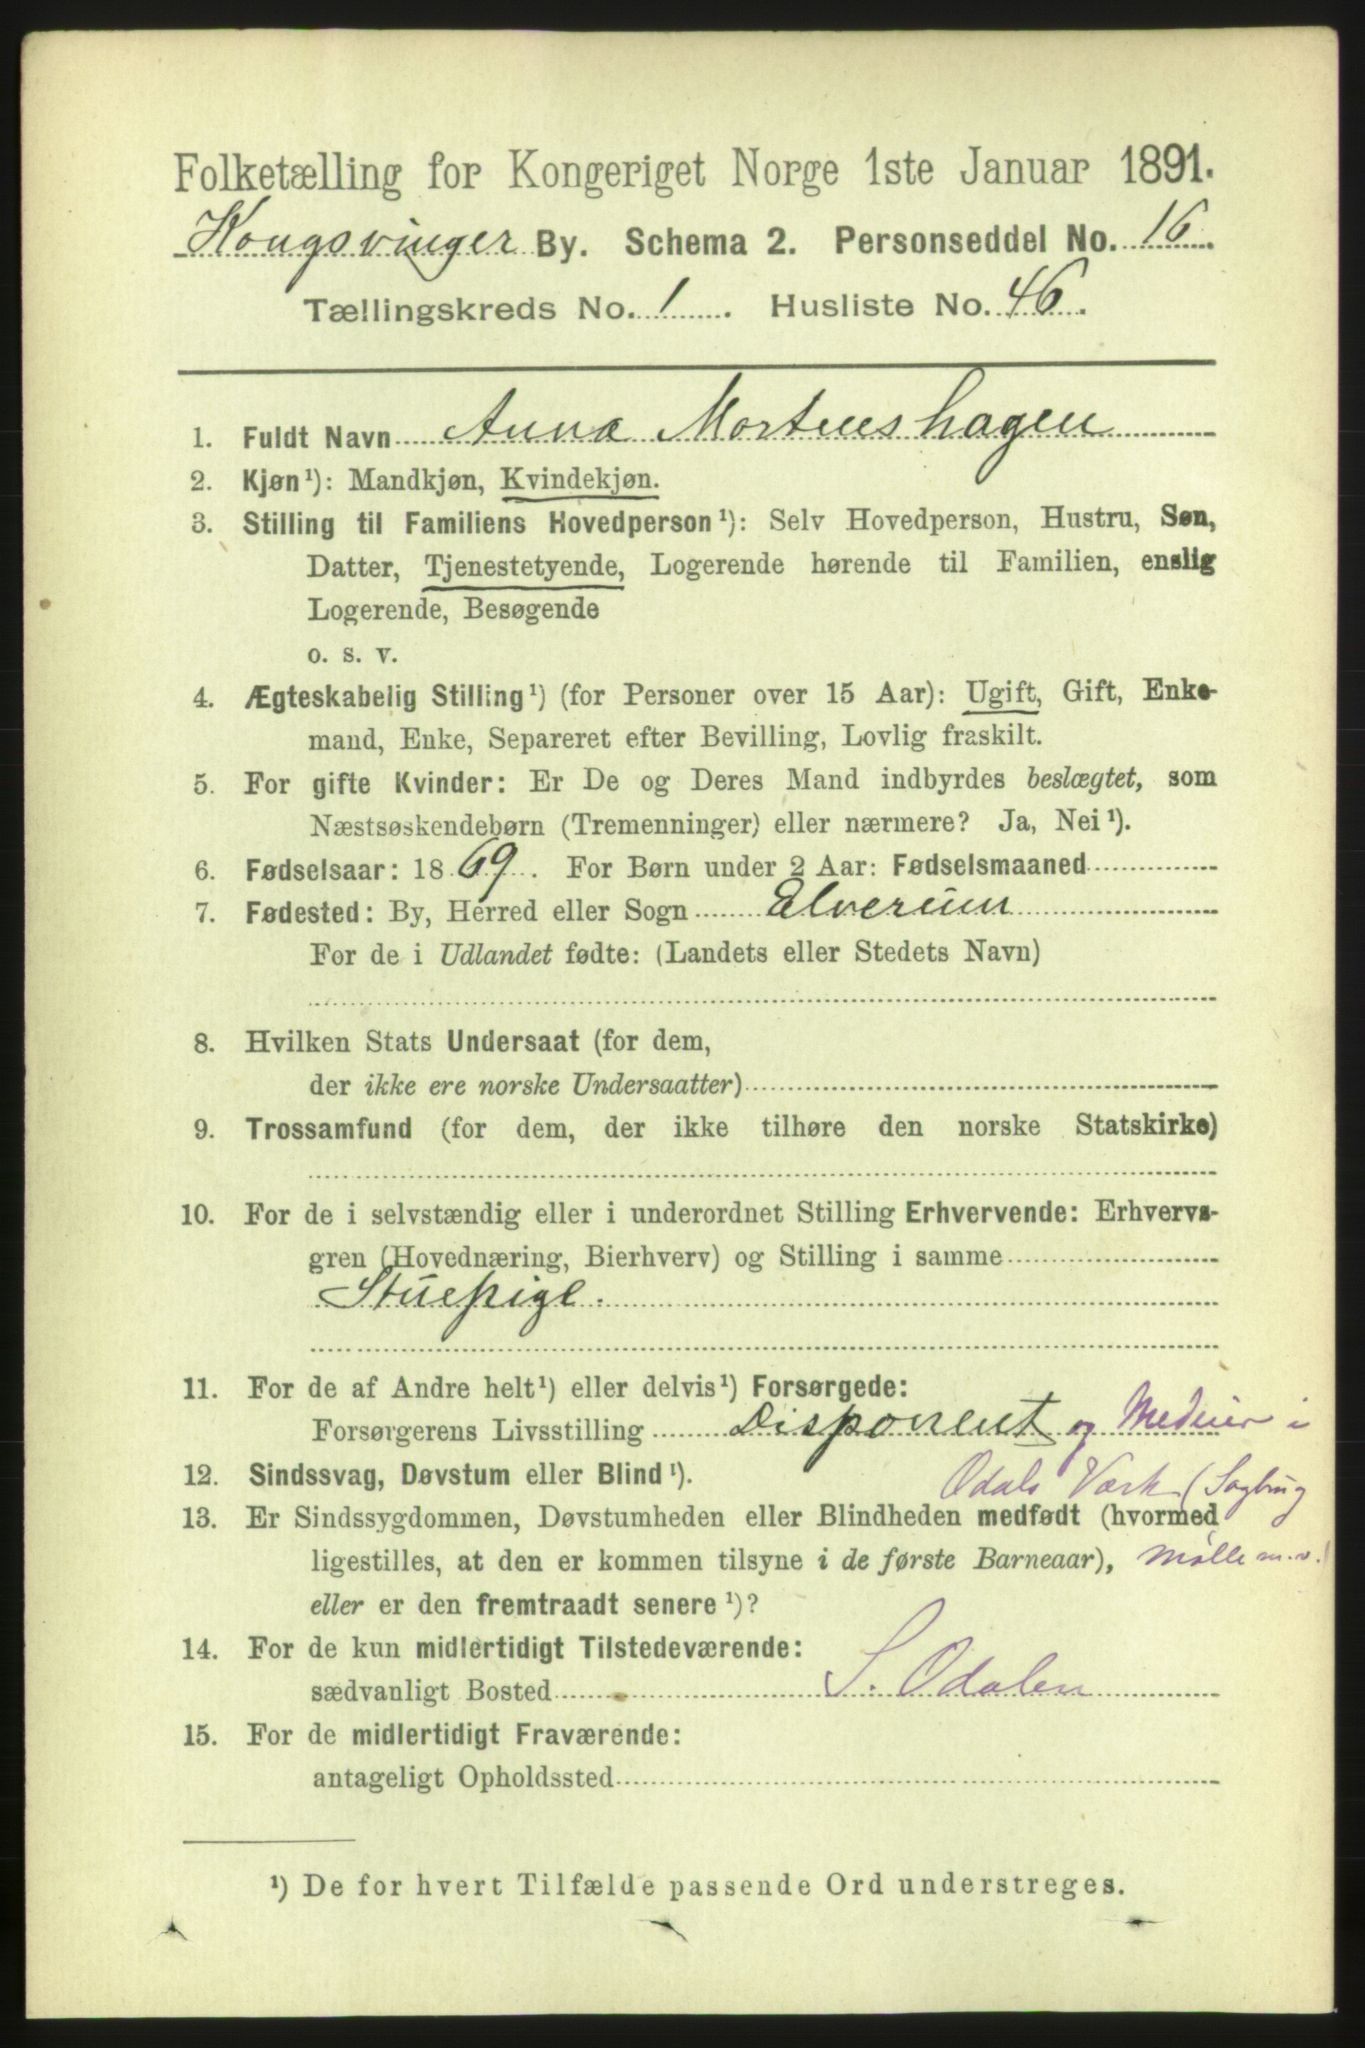 Folketælling for Kongeriget Norge 1ste Januar 1891.
Kongsvinger By. Schema 2. Personseddel No. 16.
Tællingskreds No. 1. Husliste No. 46.
1. Fuldt Navn Anna Mortenshagen
2. Kjøn¹): Mandkjøn, Kvindekjøn.
3. Stilling til Familiens Hovedperson¹): Selv Hovedperson, Hustru, Søn,
Datter, Tjenestetyende, Logerende hørende til Familien, enslig
Logerende, Besøgende
o. s. v.
4. Ægteskabelig Stilling¹) (for Personer over 15 Aar): Ugift, Gift, Enke-
mand, Enke, Separeret efter Bevilling, Lovlig fraskilt.
5. For gifte Kvinder: Er De og Deres Mand indbyrdes beslægtet, som
Næstsøskendebørn (Tremenninger) eller nærmere? Ja, Nei¹).
6. Fødselsaar: 1869. For Børn under 2 Aar: Fødselsmaaned
7. Fødested: By, Herred eller Sogn Elverum
For de i Udlandet fødte: (Landets eller Stedets Navn)
8. Hvilken Stats Undersaat (for dem,
der ikke ere norske Undersaatter)
9. Trossamfund (for dem, der ikke tilhøre den norske Statskirke)
10. For de i selvstændig eller i underordnet Stilling Erhvervende: Erhvervs-
gren (Hovednæring, Bierhverv) og Stilling i samme
Stuepige.
11. For de af Andre helt¹) eller delvis¹) Forsørgede:
Forsørgerens Livsstilling Disponent og Medeier i
12. Sindssvag, Døvstum eller Blind¹). Odals Værk (Sagbrug
13. Er Sindssygdommen, Døvstumheden eller Blindheden medfødt (hvormed
ligestilles, at den er kommen tilsyne i de første Barneaar), Mølle m.v.)
eller er den fremtraadt senere¹)?
14. For de kun midlertidigt Tilstedeværende:
sædvanligt Bosted S. Odalen
15. For de midlertidigt Fraværende:
antageligt Opholdssted
¹) De for hvert Tilfælde passende Ord understreges.